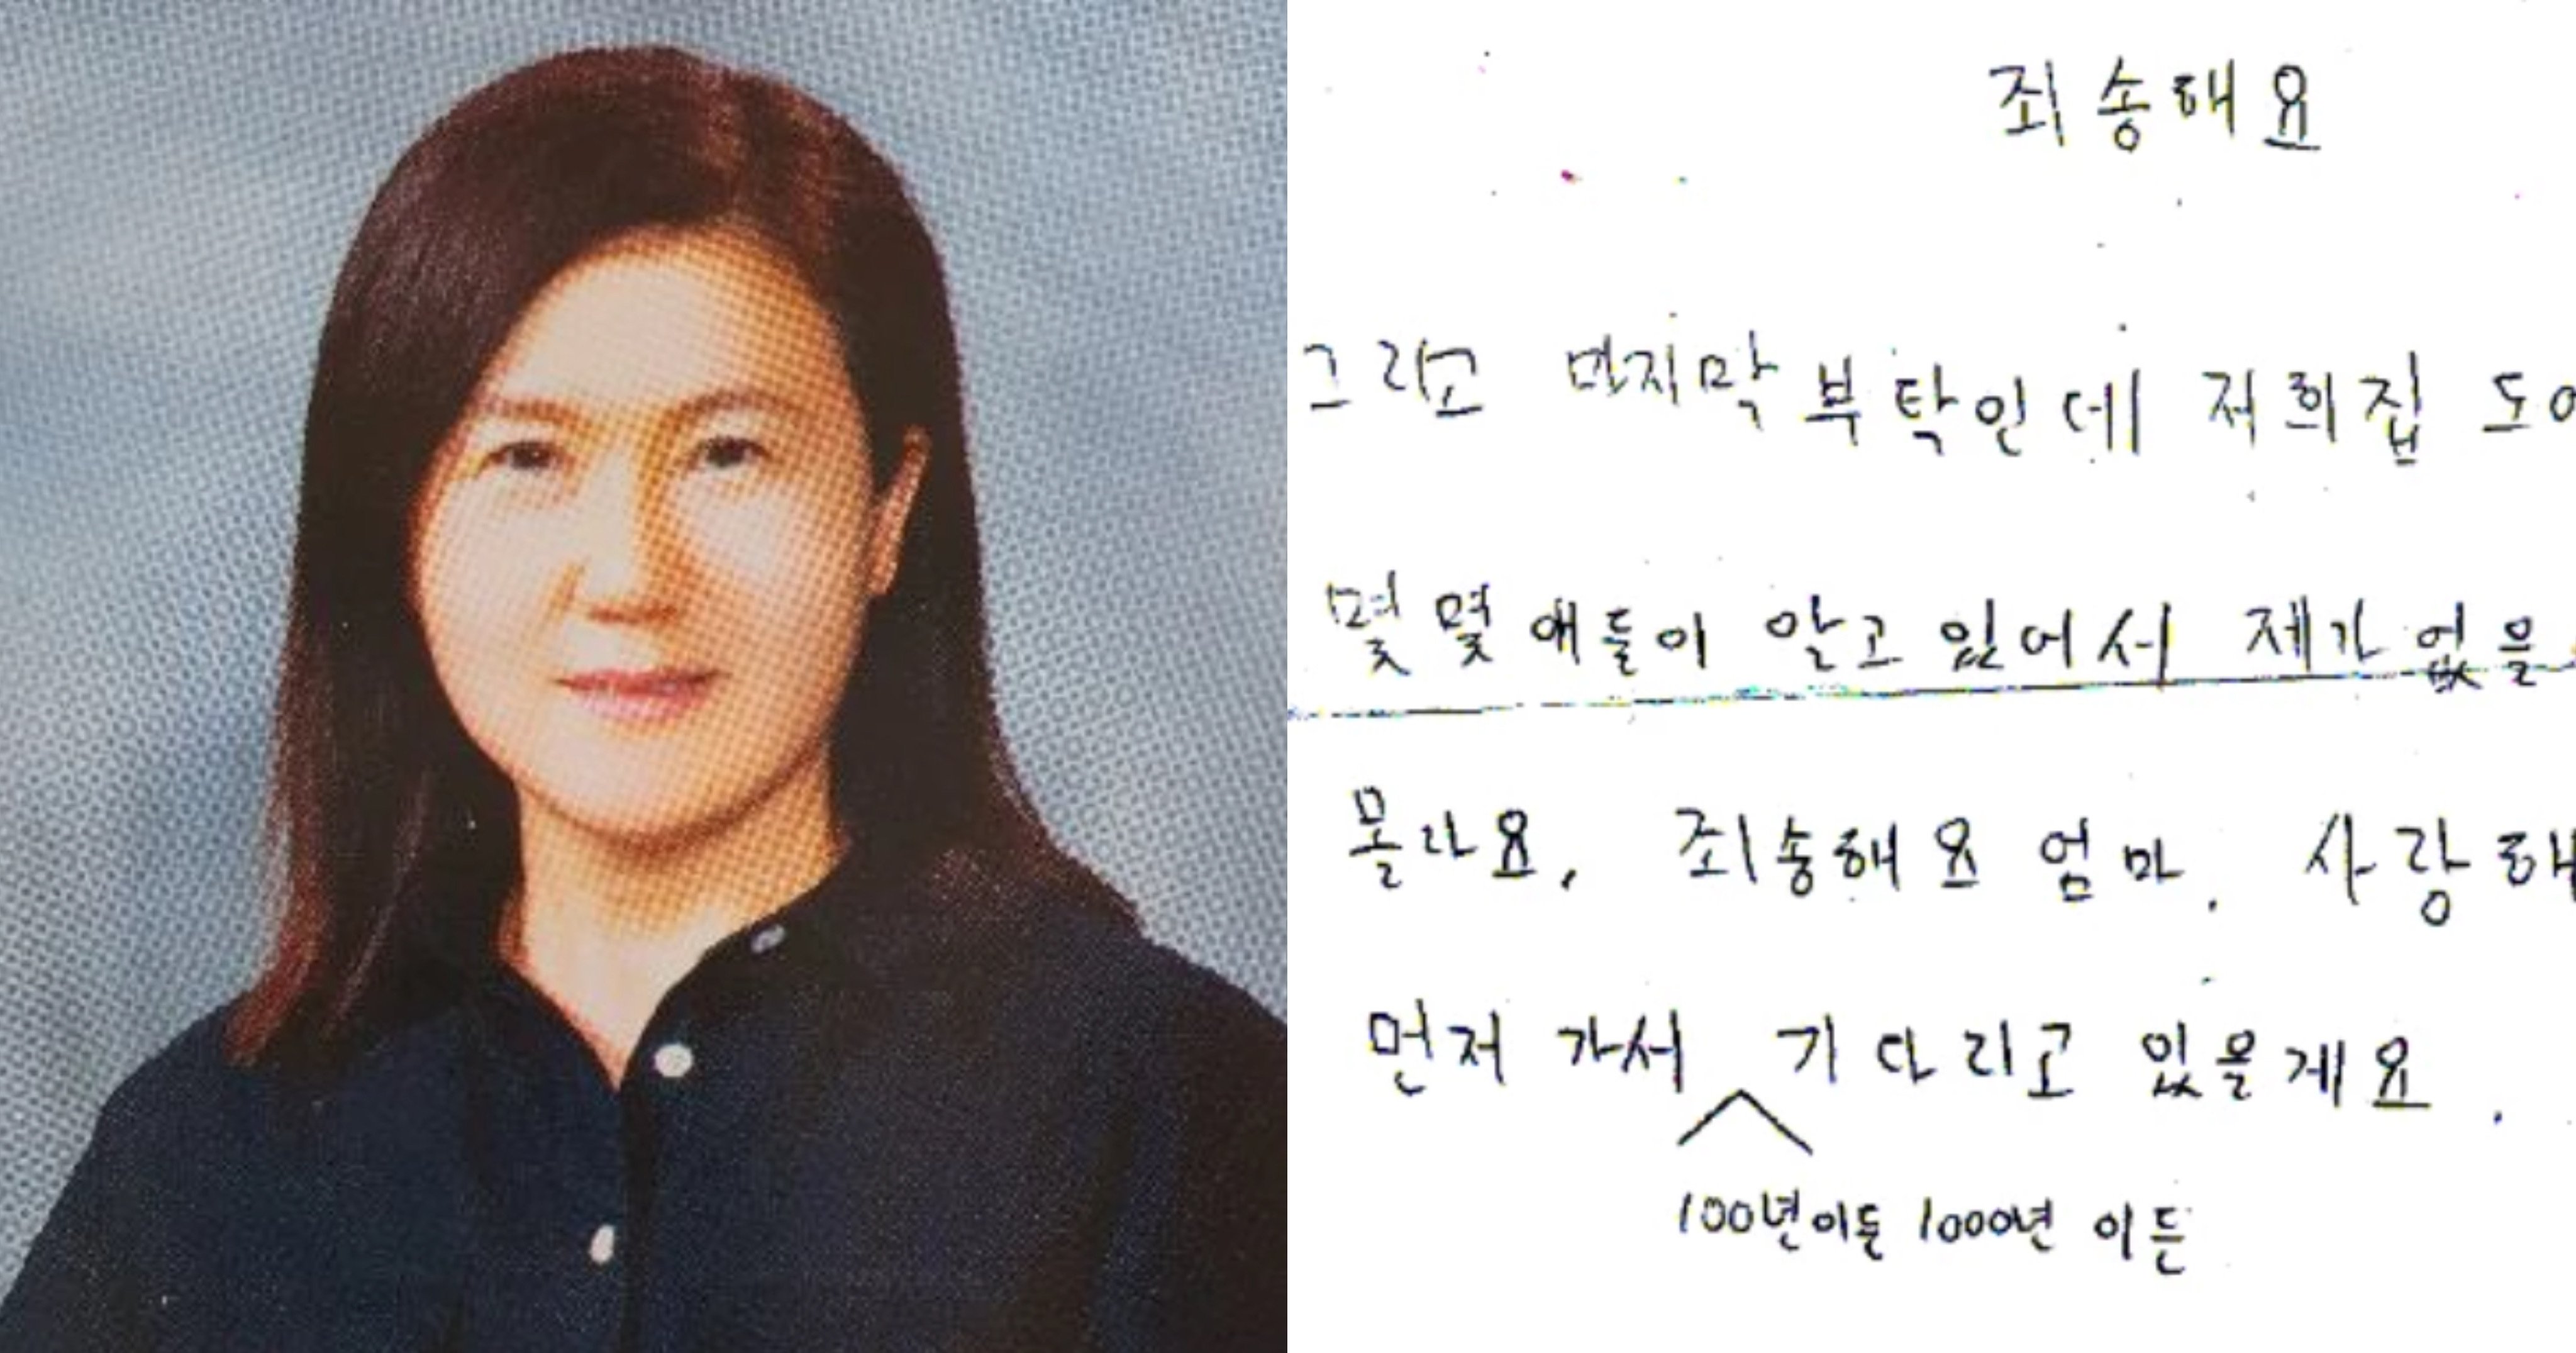 죄송해요
그리고 마지막 부탁인데 저희집 도어
몇몇 애들이 알고 있어서 제가 없을
몰라요. 죄송해요 엄마. 사랑해
먼저 가서 기다리고 있을게요.
100년이든 1000년 이든